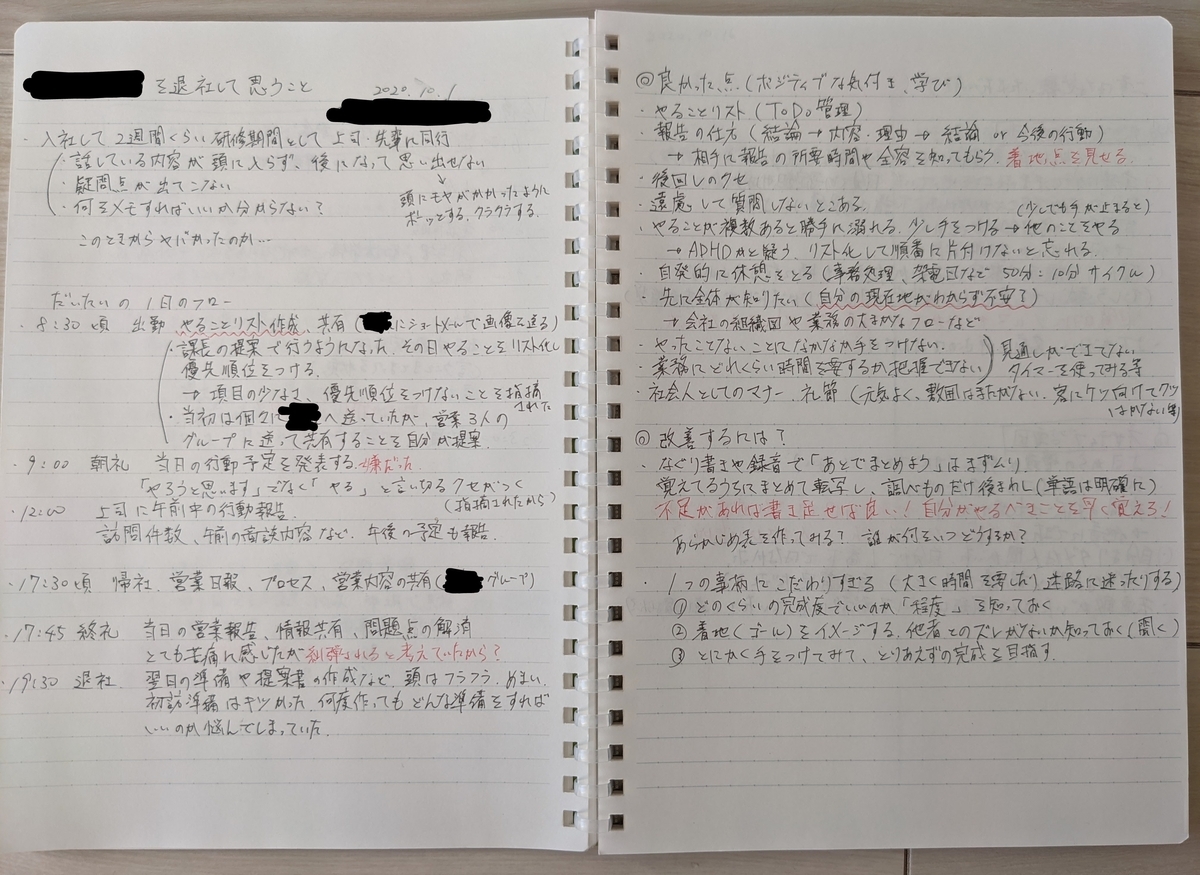 を退社して思うこと 2020.10.1
・入社して2週間くらい研修期間として上司・先輩に同行
・話している内容が頭に入らず、後になって思い出せない
・疑問点が出てこない
・何をメモすればいいか分からない?
↓
頭にモヤがかかったように
ボッとする,クラクラする.
このときからヤバかったのか…
だいたいの1日のフロー
・8:30頃 出勤 やることリスト作成、共有(にショートメールで画像を送る)
・課長の提案で行うようになった.その日やることをリスト化し
優先順位をつける.
→項目の少なさ、優先順位をつけないことを指摘された
・当初は個々にへ送っていたが、営業3人の
グループに送って共有することを自分が提案.
・9:00 朝礼 当日の行動予定を発表する.嫌だった.
「やろうと思います」でなく「やる」と言い切るクセがつく
(指摘されたから)
・12:00 上司に午前中の行動報告.
訪問件数、午前の面談内容など.午後の予定も報告.
・17:30頃 帰社.営業日報、プロセス、営業内容の共有(グループ)
・17:45 終礼 当日の営業報告、情報共有、問題点の解消
とても苦痛に感じたが糾弾されると考えていたから?
・19:30 退社. 翌日の準備や提案書の作成など.頭はフラフラ.めまい.
初訪準備はキツかった.何度作ってもどんな準備をすれば
いいのか悩んでしまっていた.
◎良かった点(ポジティブな気付き、学び)
・やることリスト(ToDo管理)
・報告の仕方(結論→内容・理由→結論 or 今後の行動)
→相手に報告の所要時間や全容を知ってもらう.着地点を見せる.
・後回しのクセ
・遠慮して質問しないとこある.
(少しでも手が止まると)
・やることが複数あると勝手に溺れる.少し手をつける→他のことをやる
→ADHDかと疑う、リスト化して順番に片付けないと忘れる.
・自発的に休憩をとる(事務処理、架電などで50分:10分サイクル)
・先に全体が知りたい(自分の現在地がわからず不安?)
→会社の組織図や業務の大まかなフローなど
・やったことないことになかなか手をつけない.
・業務にどれくらい時間を要するか把握できない
見通しができてない
タイマーを使ってみる等
・社会人としてのマナー.礼節(元気よく、敷囲は踏がない.客にケツ向けてクツはかない等)
◎改善するには?
・なぐり書きや録音で「あとでまとめよう」はまずムリ.
覚えてるうちにまとめて転写し、調べものだけ後まわし(単語は明確に)
不足があれば書き足せば良い!自分がやるべきことを早く覚えろ!
あらかじめ表を作ってみる?誰が何をいつどうするか?
・1つの事柄にこだわりすぎる(大きく時間を要したり迷路に迷ったりする)
①どのくらいの完成度でいいのか「程度」を知っておく
②着地(ゴール)をイメージする.他者とのズレがないか知っておく(聞く)
③とにかく手をつけてみて、とりあえずの完成を目指す.